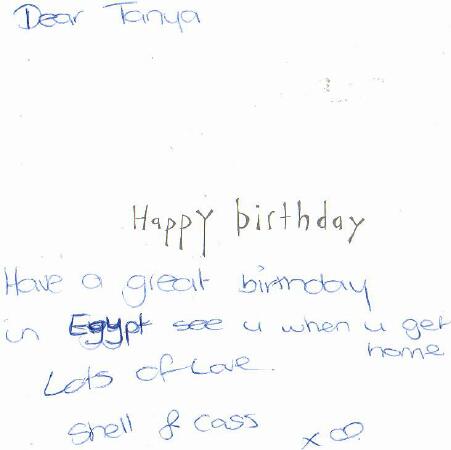 Dear Tanya
Happy birthday
Have a great birthday
in Egypt see u when u get
home
Lots of Love.
Shell & Cass